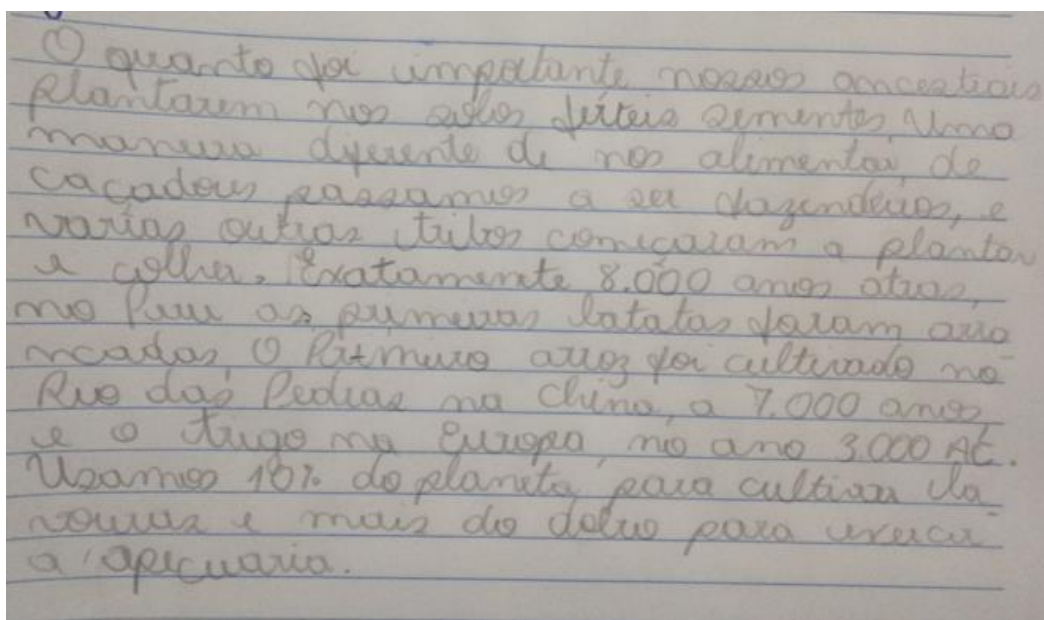 O quanto foi importante nossos ancestrais
plantarem nos solos férteis sementes, Uma
maneira diferente de nos alimentar, de
caçadores passamos a ser fazendeiros, e
varias outras tribos começaram a plantar
e colher. Exatamente 8.000 anos atras,
no Peru as primeiras batatas foram arra
ncadas, O Primeiro arroz foi cultivado no
Rio das Pedras na China, a 7.000 anos,
e o trigo na Europa, no ano 3.000 AC.
Usamos 10% do planeta, para cultivar la
vouras e mais do dobro para
a apecuaria.